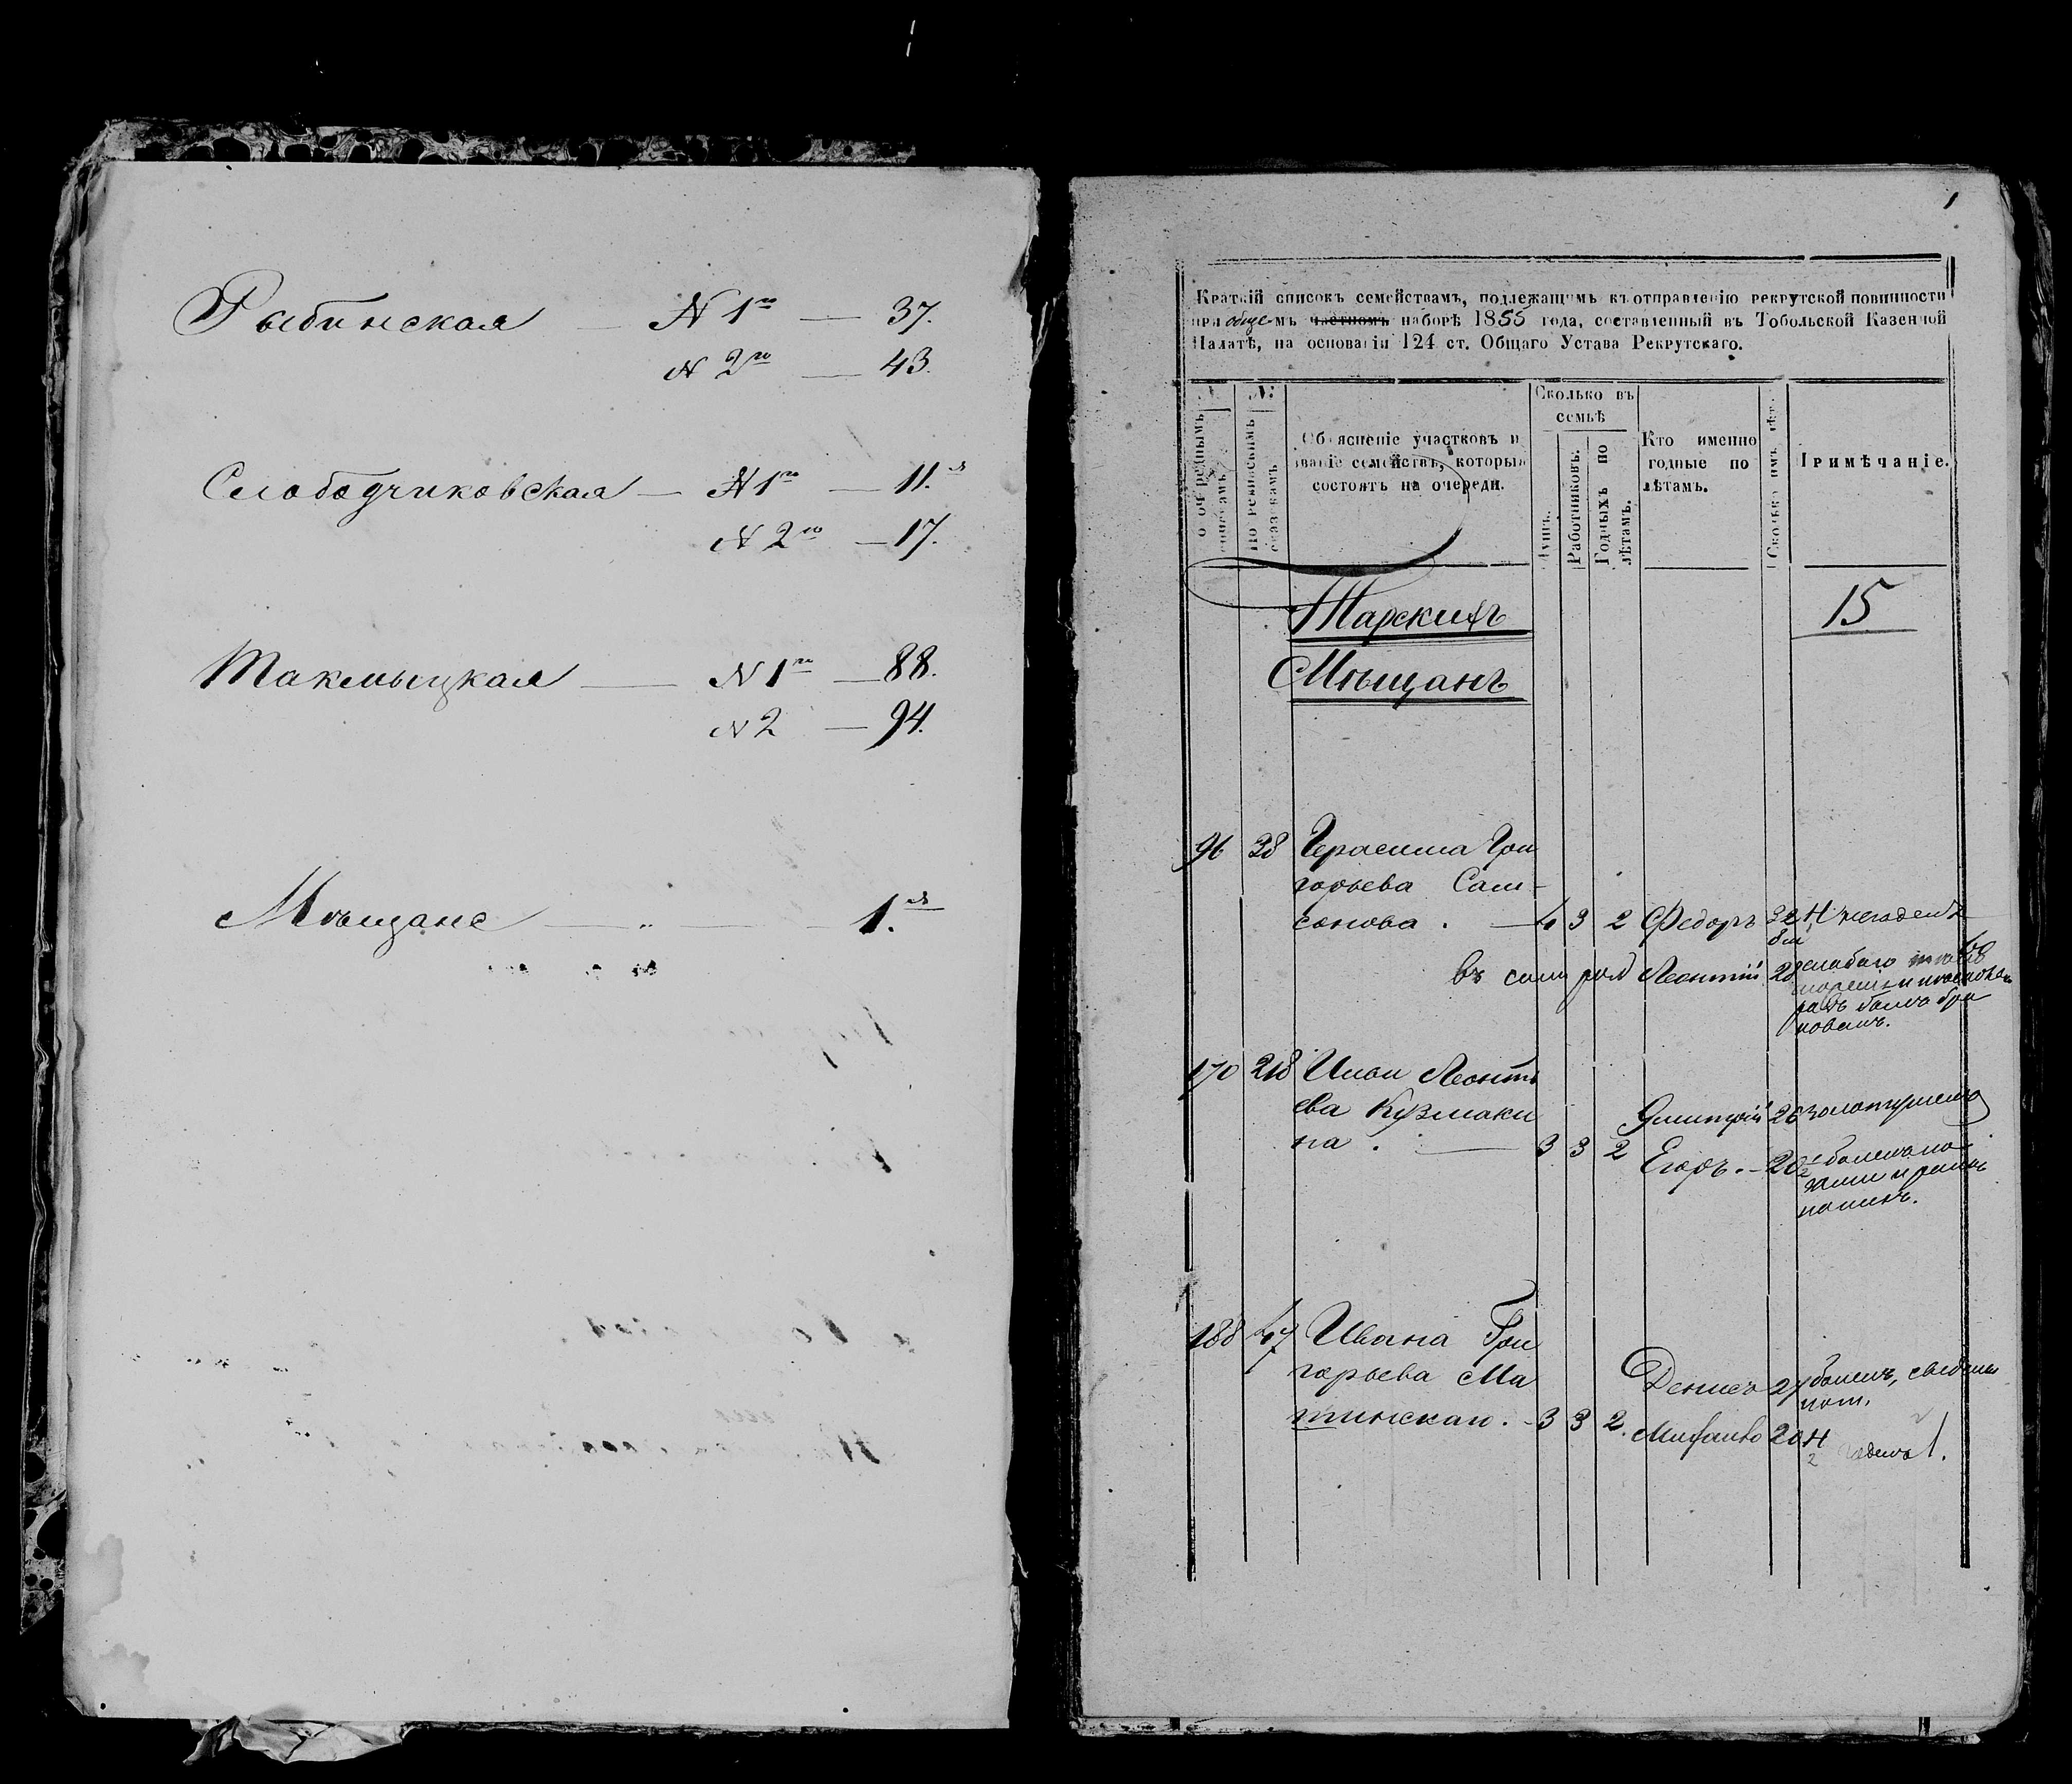 Рыбинская — N 1го — 37.
N 2го — 43.
Слободчиковская — N 1го — 11.я
N 2го — 17.
Такмыцкая — N 1го — 88.
N 2 — 94.
Мѣщане — „ — 1.я
1
Краткій списокъ семействамъ, подлежащимъ къ отправленію рекрутской повинности
при общемъ частномъ наборѣ 1855 года, составленный въ Тобольской Казенной
Палатѣ, на основаніи 124 ст. Общаго Устава Рекрутскаго.
По ревизскимъ сказкамъ.
Объясненіе участковъ и
званіе семействъ, которыя
состоятъ на очереди.
Сколько въ
семьѣ
Душъ.
Работниковъ.
Годныхъ по
лѣтамъ.
Кто именно
годные по
лѣтамъ.
Сколько имъ лѣт.
Примѣчаніе.
Тарскихъ
15
Мѣщанъ
96 28 Герасима Гри
горьева Сам-
сонова. — 4 3 2 Федоръ 32 Н негоденъ
въ Леонтій 28 слабаго
170 218 Ильи Леонть
ева Кузмаки
на. — 3 3 2
Дмитрій 26
Егоръ. — 20
188 47 Ивана Гри
горьева Ма
тинскаго. - 3 3 2.
Денисъ 27 боленъ,
Михаило 20 Н
годенъ 1.